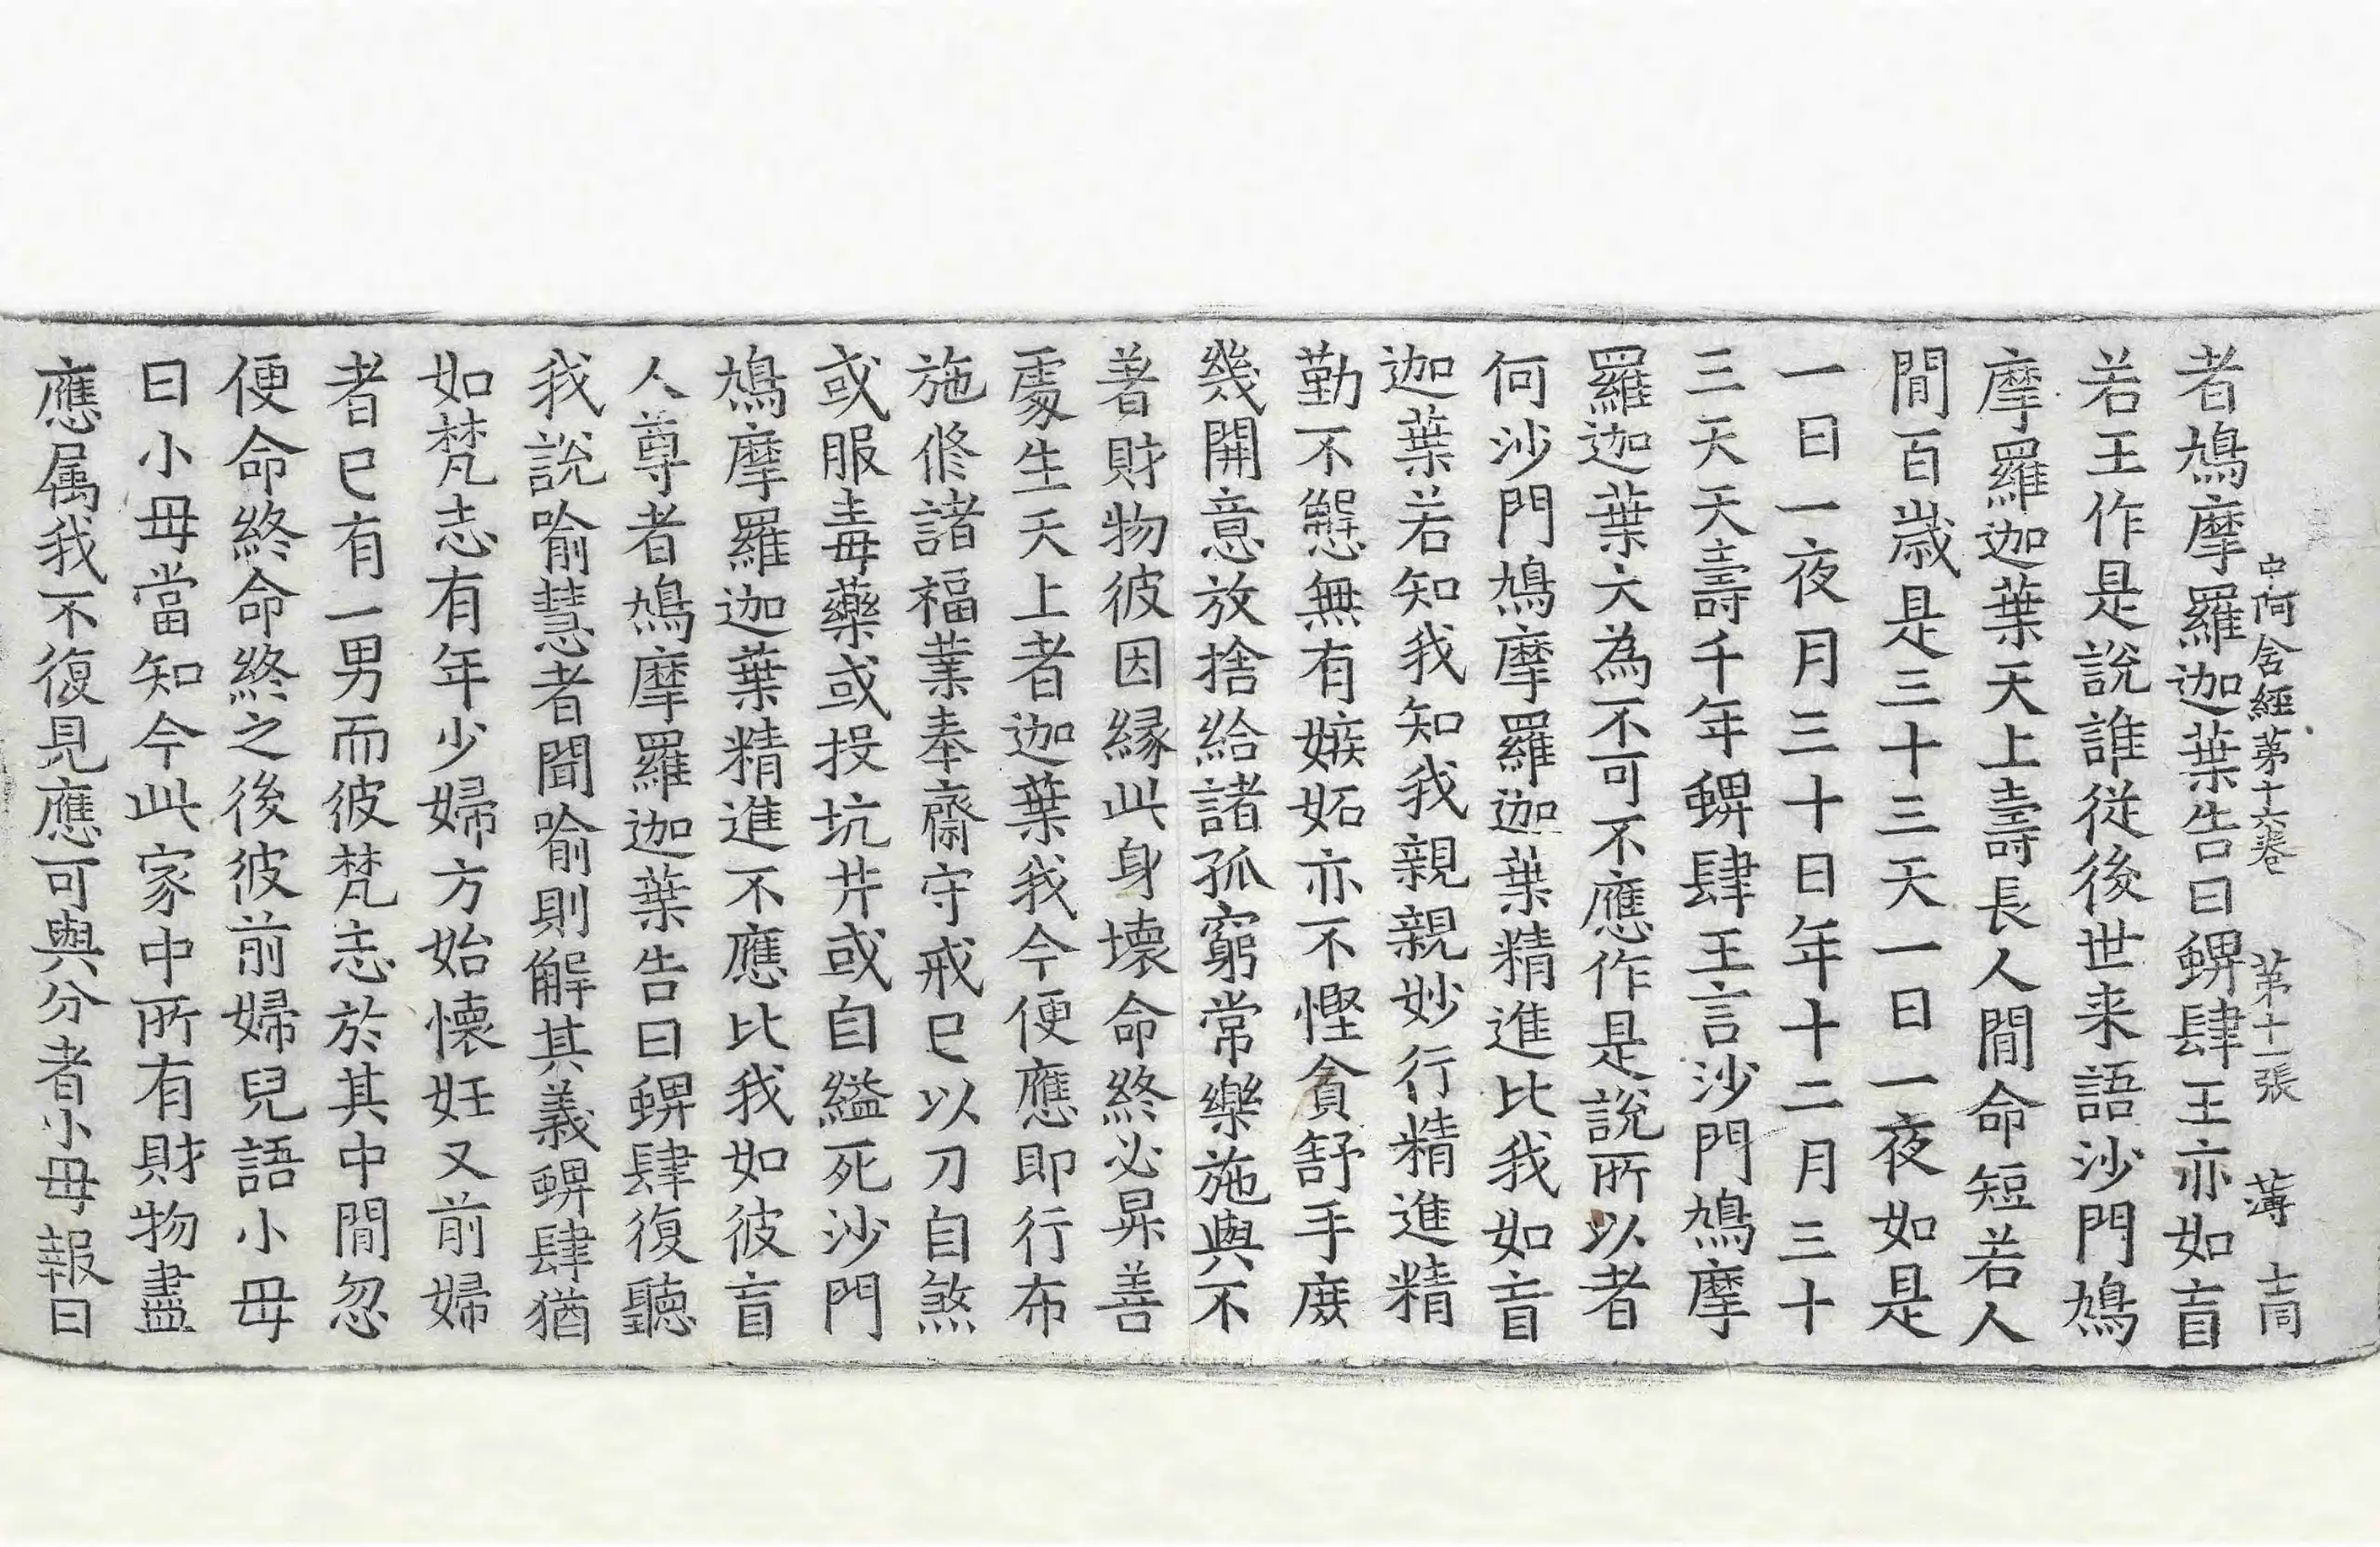 中阿含經第十六卷 第十一張 薄 士同
者鳩摩羅迦葉告曰蜱肆王亦如盲
若王作是說誰從後世来語沙門鳩
摩羅迦葉天上壽長人間命短若人
間百歲是三十三天一日一夜如是
一日一夜月三十日年十二月三十
三天天壽千年蜱肆王言沙門鳩摩
羅迦葉大為不可不應作是說所以者
何沙門鳩摩羅迦葉精進比我如盲
迦葉若知我知我親親妙行精進精
勤不懈無有嫉妬亦不慳貪舒手庶
幾開意放捨給諸孤窮常樂施與不
著財物彼因緣此身壞命終必昇善
處生天上者迦葉我今便應即行布
施修諸福業奉齋守戒已以刀自煞
或服毒藥或投坑井或自縊死沙門
鳩摩羅迦葉精進不應比我如彼盲
人尊者鳩摩羅迦葉告曰蜱肆復聽
我說喻慧者聞喻則解其義蜱肆猶
如梵志有年少婦方始懷妊又前婦
者已有一男而彼梵志於其中間忽
便命終命終之後彼前婦兒語小母
曰小母當知今此家中所有財物盡
應属我不復見應可與分者小母報曰